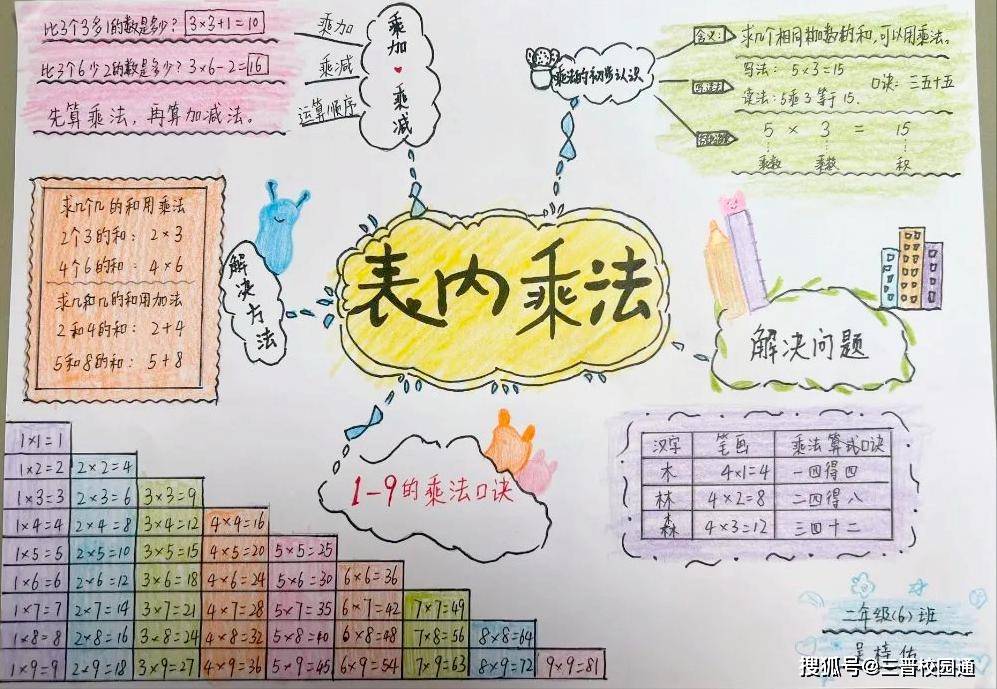 比3个3多1的数是多少? 3×3+1=10
比3个6少2的数是多少? 3×6-2=16
先算乘法，再算加减法。
乘加
乘减
运算顺序
乘加
乘减
乘法的初步认识
含义:
求几个相同加数的和,可以用乘法。
写法: 5×3=15
口诀: 三五十五
读法: 5乘3等于15.
5 × 3 = 15
乘数 乘数 积
求几个几的和用乘法
2个3的和: 2×3
4个6的和: 4×6
求几和几的和用加法
2和4的和: 2+4
5和8的和: 5+8
解决方法
表内乘法
解决问题
1-9的乘法口诀
汉字 笔画 乘法算式口诀
木 4×1=4 一四得四
林 4×2=8 二四得八
森 4×3=12 三四十二
1×1=1
1×2=2 2×2=4
1×3=3 2×3=6 3×3=9
1×4=4 2×4=8 3×4=12 4×4=16
1×5=5 2×5=10 3×5=15 4×5=20 5×5=25
1×6=6 2×6=12 3×6=18 4×6=24 5×6=30 6×6=36
1×7=7 2×7=14 3×7=21 4×7=28 5×7=35 6×7=42 7×7=49
1×8=8 2×8=16 3×8=24 4×8=32 5×8=40 6×8=48 7×8=56 8×8=64
1×9=9 2×9=18 3×9=27 4×9=36 5×9=45 6×9=54 7×9=63 8×9=72 9×9=81
二年级(6)班
搜狐号@三晋校园通